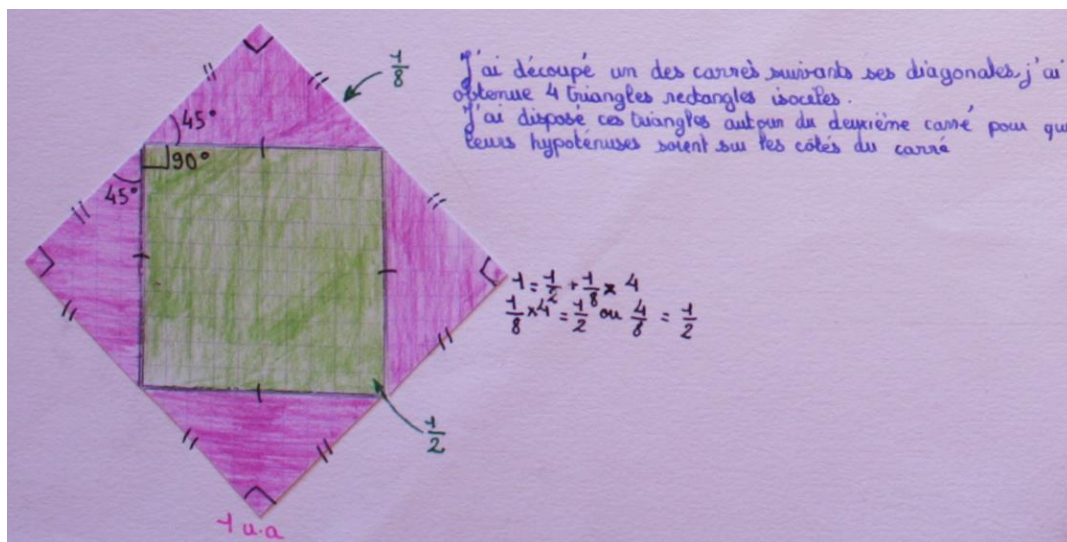 1/8
J'ai découpé un des carrés suivants ses diagonales, j'ai
obtenue 4 triangles rectangles isoceles.
J'ai disposé ces triangles autour du deuxième carré pour qu
leurs hypoténuses soient sur les côtés du carré
45°
90°
45°
1 = 1/2 + 1/8 × 4
1/8 × 4 = 1/2 ou 4/8 = 1/2
1/2
1 u.a